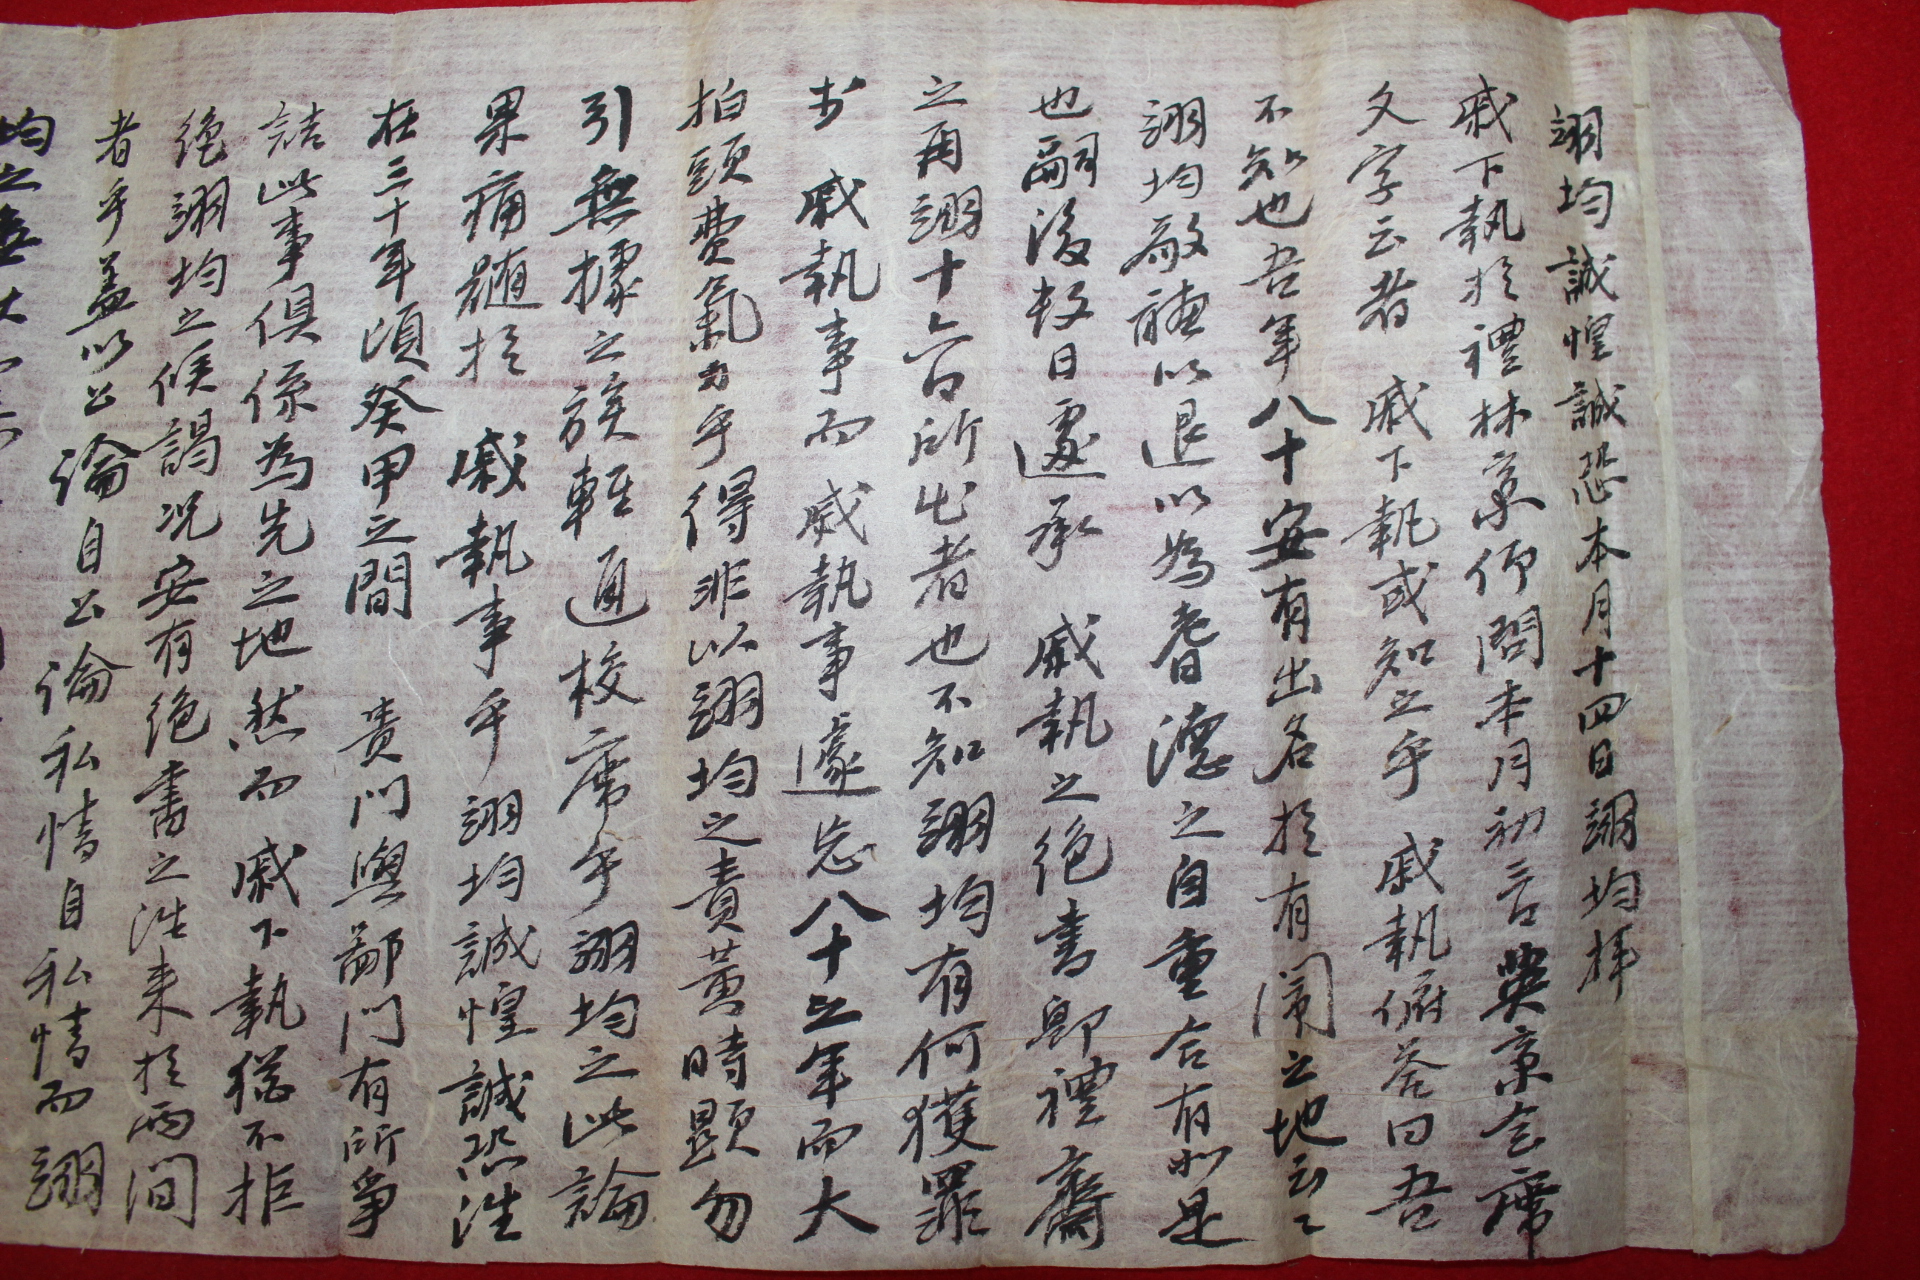 翊均誠惶誠恐本月十四日翊均拜
戚下執於禮林京仰問本月初吉與京会席
文字云者 戚下執或知之乎 戚執俯答曰吾
不知也吾年八十安有出名於有閙之地云々
翊均敬聽以退以為耆德之自重合有如是
也嗣後数日遽承 戚執之絶書卽禮齋
之再翊十台所出者也不知翊均有何獲罪
於 戚執事而 戚執事遽忘八十之年而大
拍頭費氣力乎得非以翊均之責黃時顯勿
引無據之族輕通校席乎翊均之此論
果痛髓於 戚執事乎翊均誠惶誠恐洼
在三十年頃癸甲之間 貴門與鄙門有所爭
詰此事俱係為先之地然而 戚下執猶不拒
絶翊均之候謁况安有絶書之洼来於两间
者乎盖以公論自公論私情自私情而翊
均之